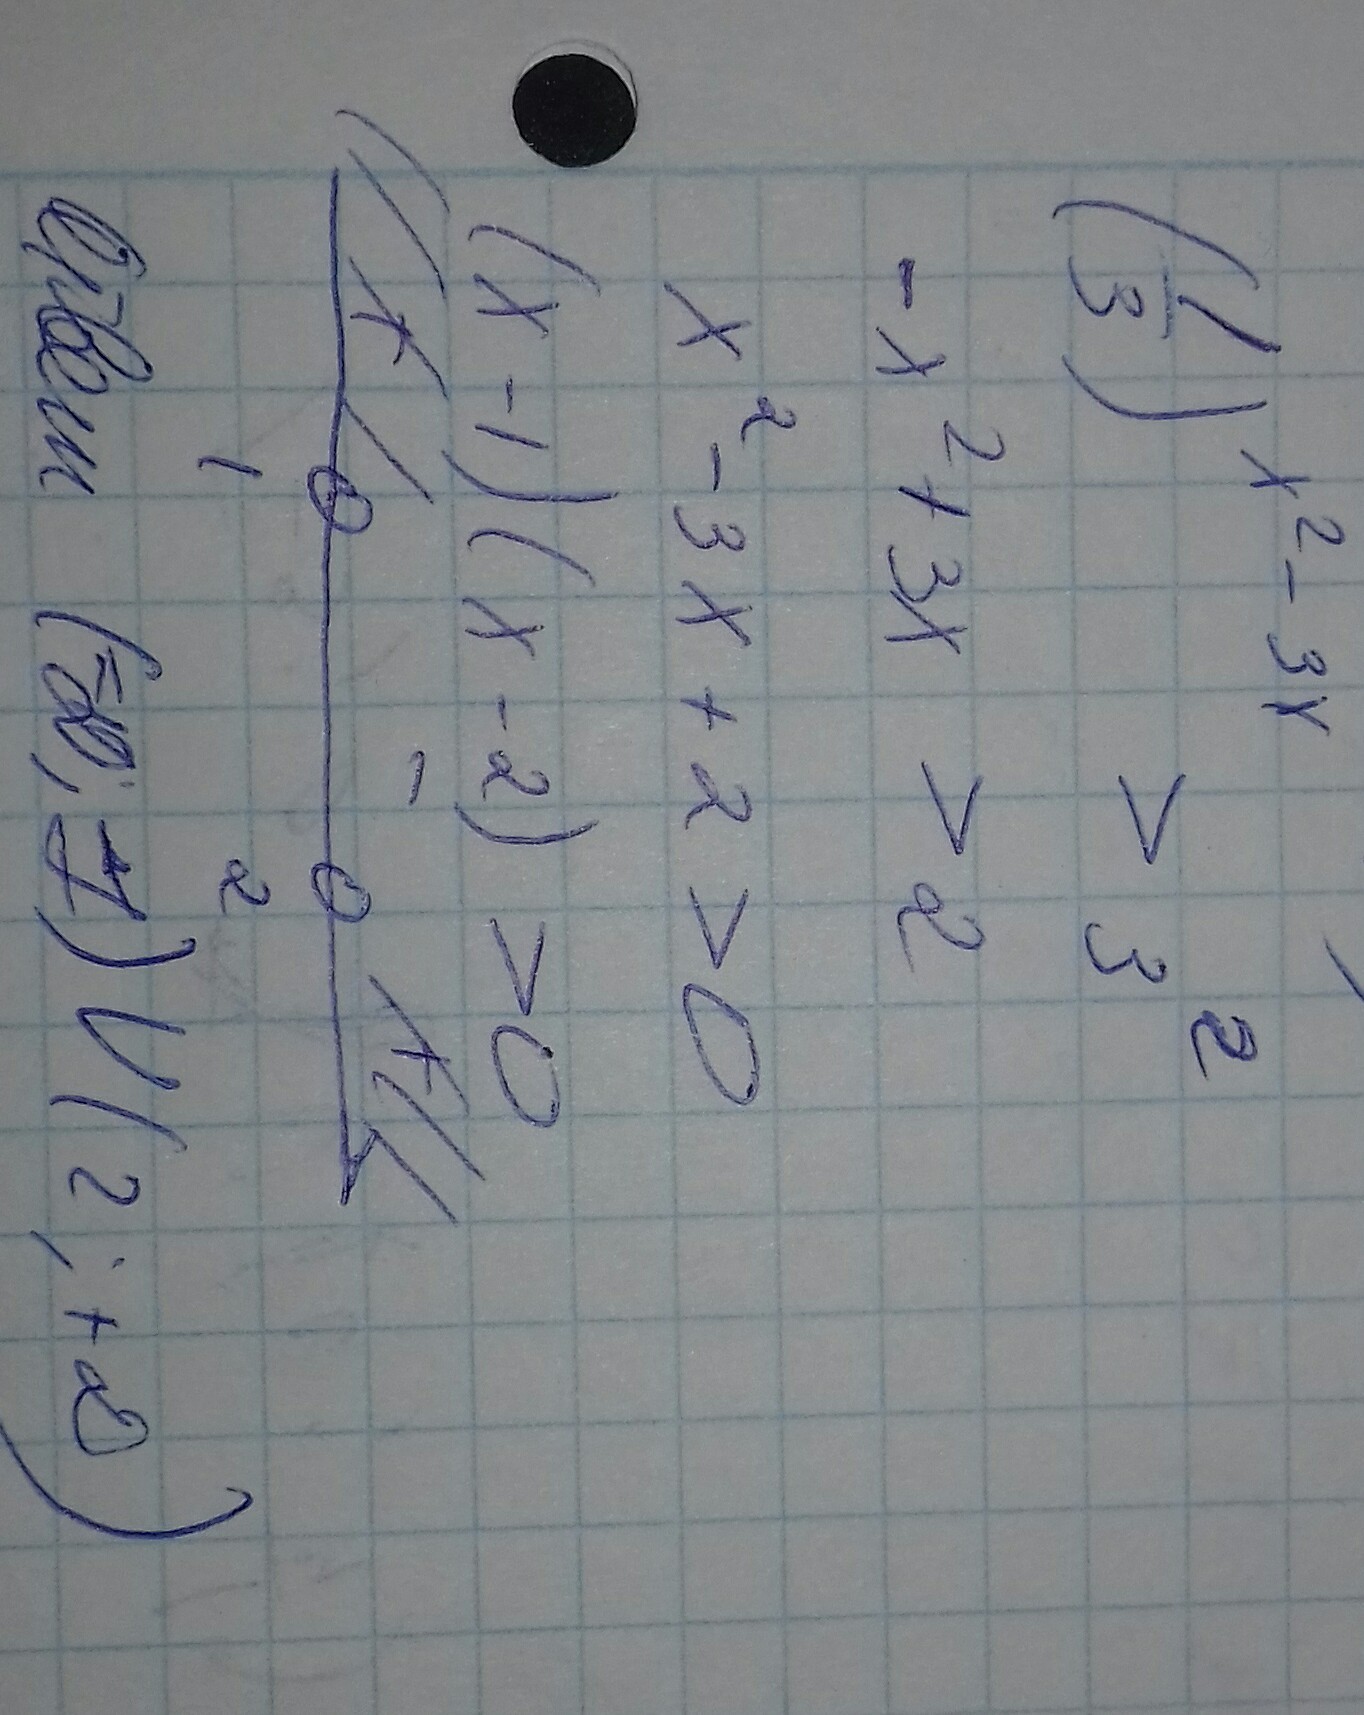 (1/3)^(x²-3x) > 3²
-x²+3x > 2
x²-3x+2 > 0
(x-1)(x-2) > 0
+ - +
1 2
Ответ (-∞; 1) ∪ (2; +∞)